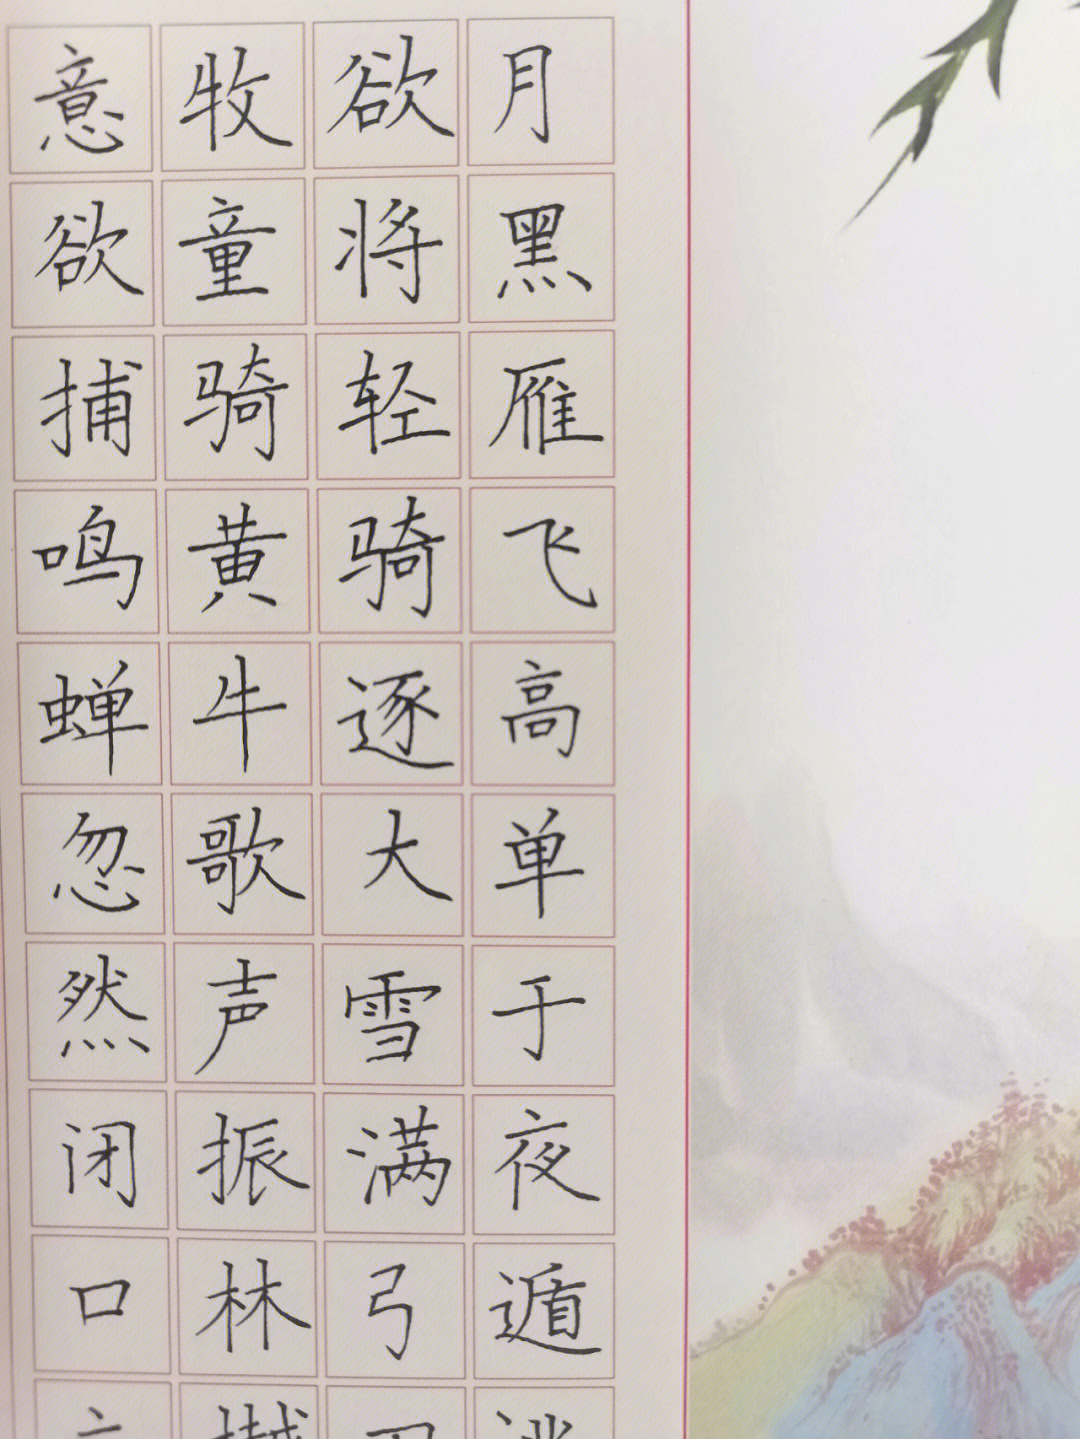 月黑雁飞高单于夜遁
欲将轻骑逐大雪满弓
牧童骑黄牛歌声振林
意欲捕鸣蝉忽然闭口